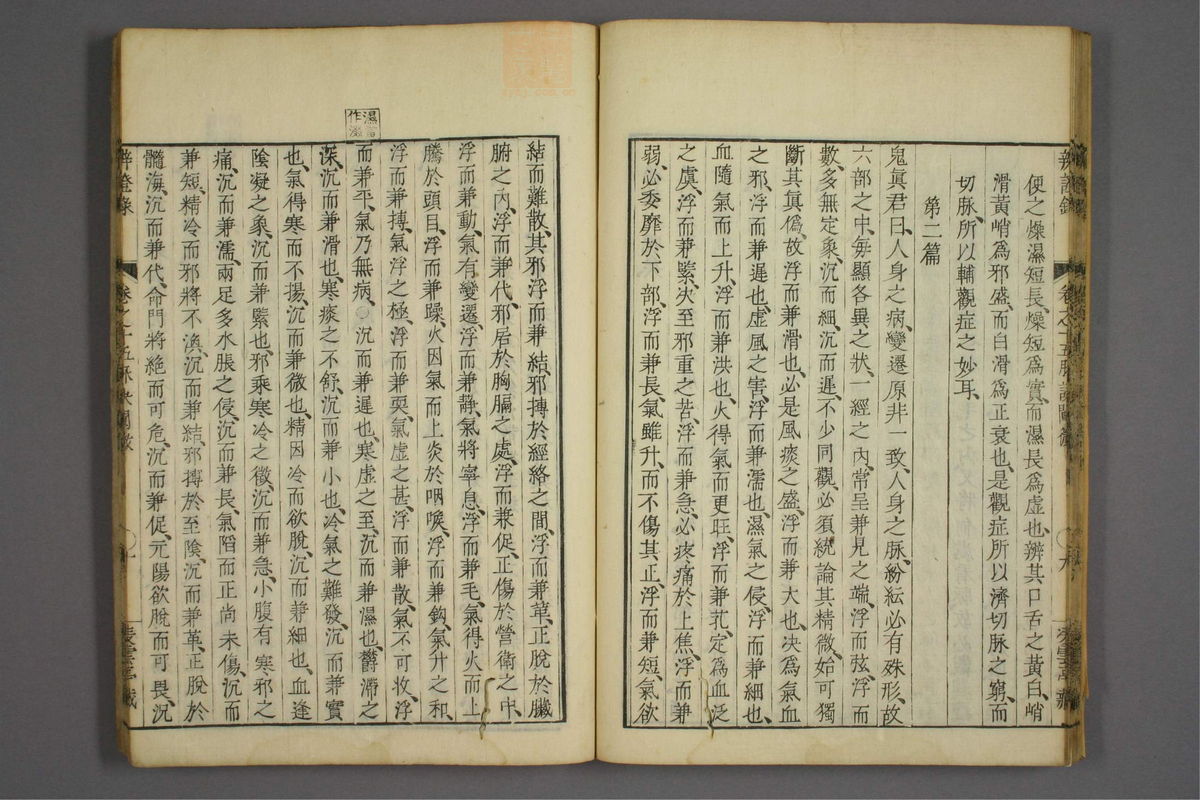 便之燥濕短長燥短爲實而濕長爲虚也辨其口舌之黃白峭
滑黃峭爲邪盛而白滑爲正衰也是觀症所以濟切脉之窮而
切脉所以輔觀症之妙耳
第二篇
鬼眞君曰人身之病變遷原非一致人身之脉紛紜必有殊形故
六部之中每顯各異之狀一經之內常呈兼見之端浮而弦浮而
數多無定象沉而細沉而遲不少同觀必須統論其精微始可獨
斷其眞僞故浮而兼滑也必是風痰之盛浮而兼大也决爲氣血
之邪浮而兼遲也虚風之害浮而兼濡也濕氣之侵浮而兼細也
血隨氣而上升浮而兼洪也火得氣而更旺浮而兼芤定爲血泛
之虞浮而兼緊决至邪重之苦浮而兼急必疼痛於上焦浮而兼
弱必委靡於下部浮而兼長氣雖升而不傷其正浮而兼短氣欲
結而難散其邪浮而兼結邪搏於經絡之間浮而兼革正脫於臟
腑之內浮而兼代邪居於胸膈之處浮而兼促正傷於營衛之中
浮而兼動氣有變遷浮而兼靜氣將寧息浮而兼毛氣得火而上
騰於頭目浮而兼躁火因氣而上炎於咽喉浮而兼鈎氣升之和
浮而兼搏氣浮之極浮而兼耎氣虚之甚浮而兼散氣不可收浮
而兼平氣乃無病○沉而兼遲也寒虚之至沉而兼濕也欝滯之
深沉而兼滑也寒痰之不舒沉而兼小也冷氣之難發沉而兼實
也氣得寒而不揚沉而兼微也精因冷而欲脫沉而兼細也血逢
陰凝之象沉而兼緊也邪乘寒冷之徵沉而兼急小腹有寒邪之
痛沉而兼濡兩足多水脹之侵沉而兼長氣陷而正尚未傷沉而
兼短精冷而邪將不渙沉而兼結邪搏於至陰沉而兼革正脫於
髓海沉而兼代命門將絶而可危沉而兼促元陽欲脫而可畏沉
辨證錄 卷之十五